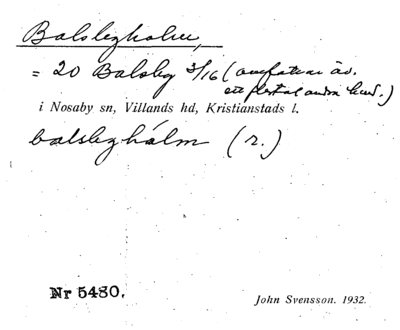 Balslegholm,
= 20 Balsleg 3/16 (omfattar äv.
ett flertal andra hmd.)
i Nosaby sn, Villands hd, Kristianstads l.
balsleghálm (r.)
Nr 5480.
John Svensson. 1932.